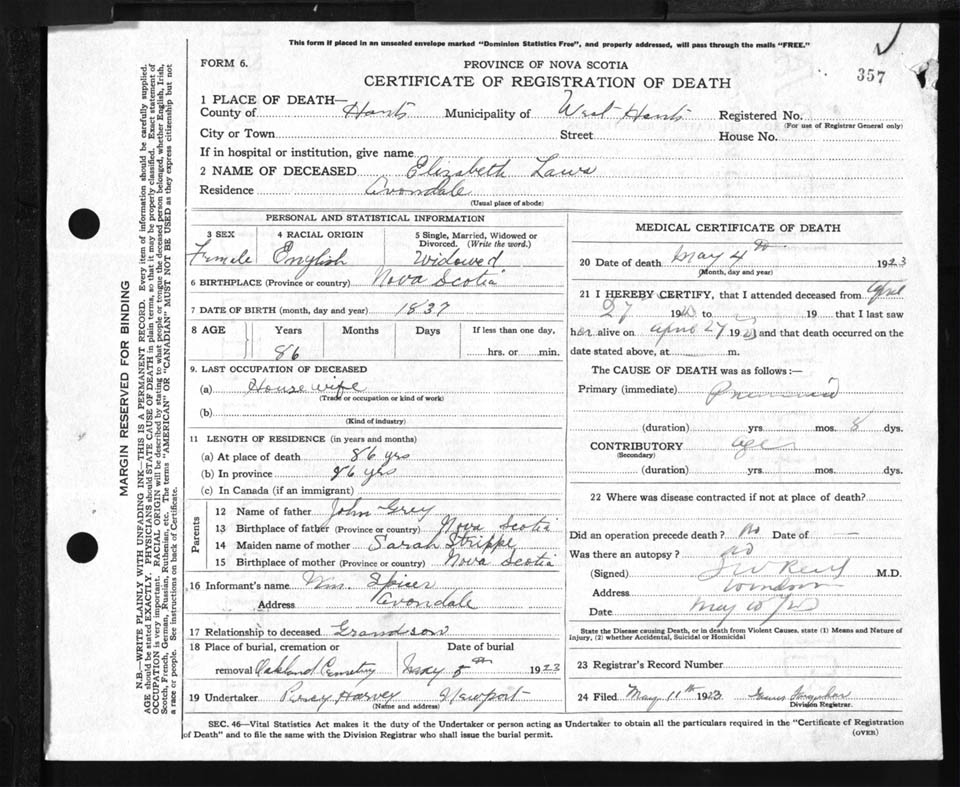 This form if placed in an unsealed envelope marked "Dominion Statistics Free", and properly addressed, will pass through the mails "FREE."
FORM 6.
PROVINCE OF NOVA SCOTIA
357
CERTIFICATE OF REGISTRATION OF DEATH
1 PLACE OF DEATH—
County of Hants Municipality of West Hants Registered No.
(For use of Registrar General only)
City or Town Street House No.
If in hospital or institution, give name
2 NAME OF DECEASED Elizabeth Laws
Residence Avondale
(Usual place of abode)
PERSONAL AND STATISTICAL INFORMATION
3 SEX 4 RACIAL ORIGIN 5 Single, Married, Widowed or Divorced. (Write the word.)
Female English Widowed
6 BIRTHPLACE (Province or country) Nova Scotia
7 DATE OF BIRTH (month, day and year) 1837
8 AGE Years Months Days If less than one day,
86 hrs. or min.
9. LAST OCCUPATION OF DECEASED
(a) House wife
(Trade or occupation or kind of work)
(b)
(Kind of industry)
11 LENGTH OF RESIDENCE (in years and months)
(a) At place of death 86 yrs
(b) In province 86 yrs
(c) In Canada (if an immigrant)
Parents
12 Name of father John Grey
13 Birthplace of father (Province or country) Nova Scotia
14 Maiden name of mother Sarah Strippe
15 Birthplace of mother (Province or country) Nova Scotia
16 Informant's name Wm. Spicer
Address Avondale
17 Relationship to deceased Grandson
18 Place of burial, cremation or Date of burial
removal Oakland Cemetery May 5th 1923
19 Undertaker Percy Harvey Newport
(Name and address)
MEDICAL CERTIFICATE OF DEATH
20 Date of death May 4th 1923
(Month, day and year)
21 I HEREBY CERTIFY, that I attended deceased from April
27 19 to 19 that I last saw
her alive on April 27 192 and that death occurred on the
date stated above, at m.
The CAUSE OF DEATH was as follows:—
Primary (immediate)
(duration) yrs. mos. 8 dys.
CONTRIBUTORY age
(Secondary)
(duration) yrs. mos. dys.
22 Where was disease contracted if not at place of death?
Did an operation precede death? no Date of —
Was there an autopsy? no
(Signed) M.D.
Address Windsor
Date May 10/23
State the Disease causing Death, or in death from Violent Causes, state (1) Means and Nature of
Injury, (2) whether Accidental, Suicidal or Homicidal
23 Registrar's Record Number
24 Filed May 11th 1923
Division Registrar.
SEC. 46—Vital Statistics Act makes it the duty of the Undertaker or person acting as Undertaker to obtain all the particulars required in the "Certificate of Registration
of Death" and to file the same with the Division Registrar who shall issue the burial permit.
(OVER)
MARGIN RESERVED FOR BINDING
N.B.—WRITE PLAINLY WITH UNFADING INK—THIS IS A PERMANENT RECORD. Every item of information should be carefully supplied.
AGE should be stated EXACTLY. PHYSICIANS should STATE CAUSE OF DEATH in plain terms, so that it may be properly classified. Exact statement of
OCCUPATION is very important. RACIAL ORIGIN will be described by stating to what people or tongue the deceased person belonged, whether English, Irish,
Scotch, French, German, Russian, Ruthenian, etc. The terms "AMERICAN" OR "CANADIAN" MUST NOT BE USED as they express citizenship but not
a race or people. See instructions on back of Certificate.